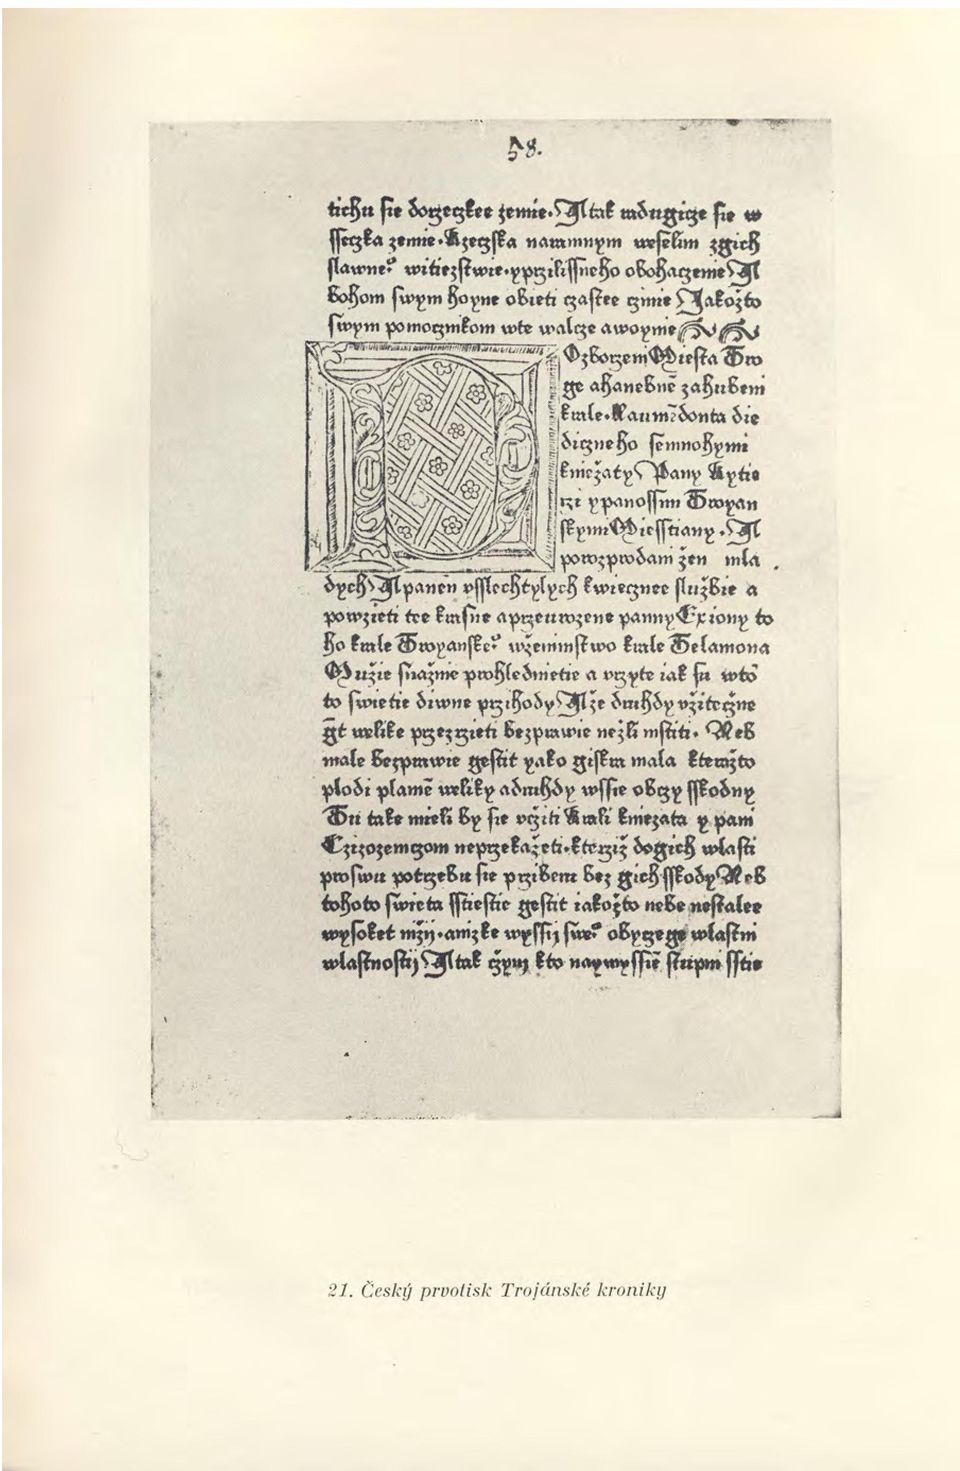 58.
tichu sie dorzeczkee zemie. A tak radugicze sie w
sseczka zemie. Rzeczska naramnym weselim zgich
slawne° witiezstwie. yprzilissneho obohaczenie A
bohom swym hoyne obieti czastee czinie Jakožto
swym pomocznikom wte walcze awoynie
Ozborzeni Miesta Tro
ge ahanebnē zahubeni
krale. Laumedonta die
diczneho semnohymi
kniežaty Pany Rytie
rzi ypanossimi Troyan
skymi Miesstiany. A
porozprodani žen mla
dych A panen vsslechtylych kwiecznee službie a
powzieti tee krasne aprzeurozene panny Exiony to
ho krale Troyanske° wženimstwo krale Telamona
Mužie snažnie prohlednietie a vrzyte iak su wtō
to swietie diwne przihody A že druhdy vžitečzne
gt welike przezrzieti bezprawie nežli mstiti. Neb
male bezprawie gestit yako giskra mala kteražto
plodi plamē weliky adruhdy wssie obczy sskodny
Tu take mieli by sie včziti Krali kniezata y pani
Czizozemczom neprzekažeti. kterziž dogich wlasti
proswu potrzebu sie prziberu bez gich sskody Neb
tohoto swieta sstiestie gestit iakožto nebe nestalee
wysoket nižij. anizke wyssij swe° obyczege wlastni
wlastnostij A tak čzym kto naywyssiē stupni sstie
21. Český prvotisk Trojánské kroniky